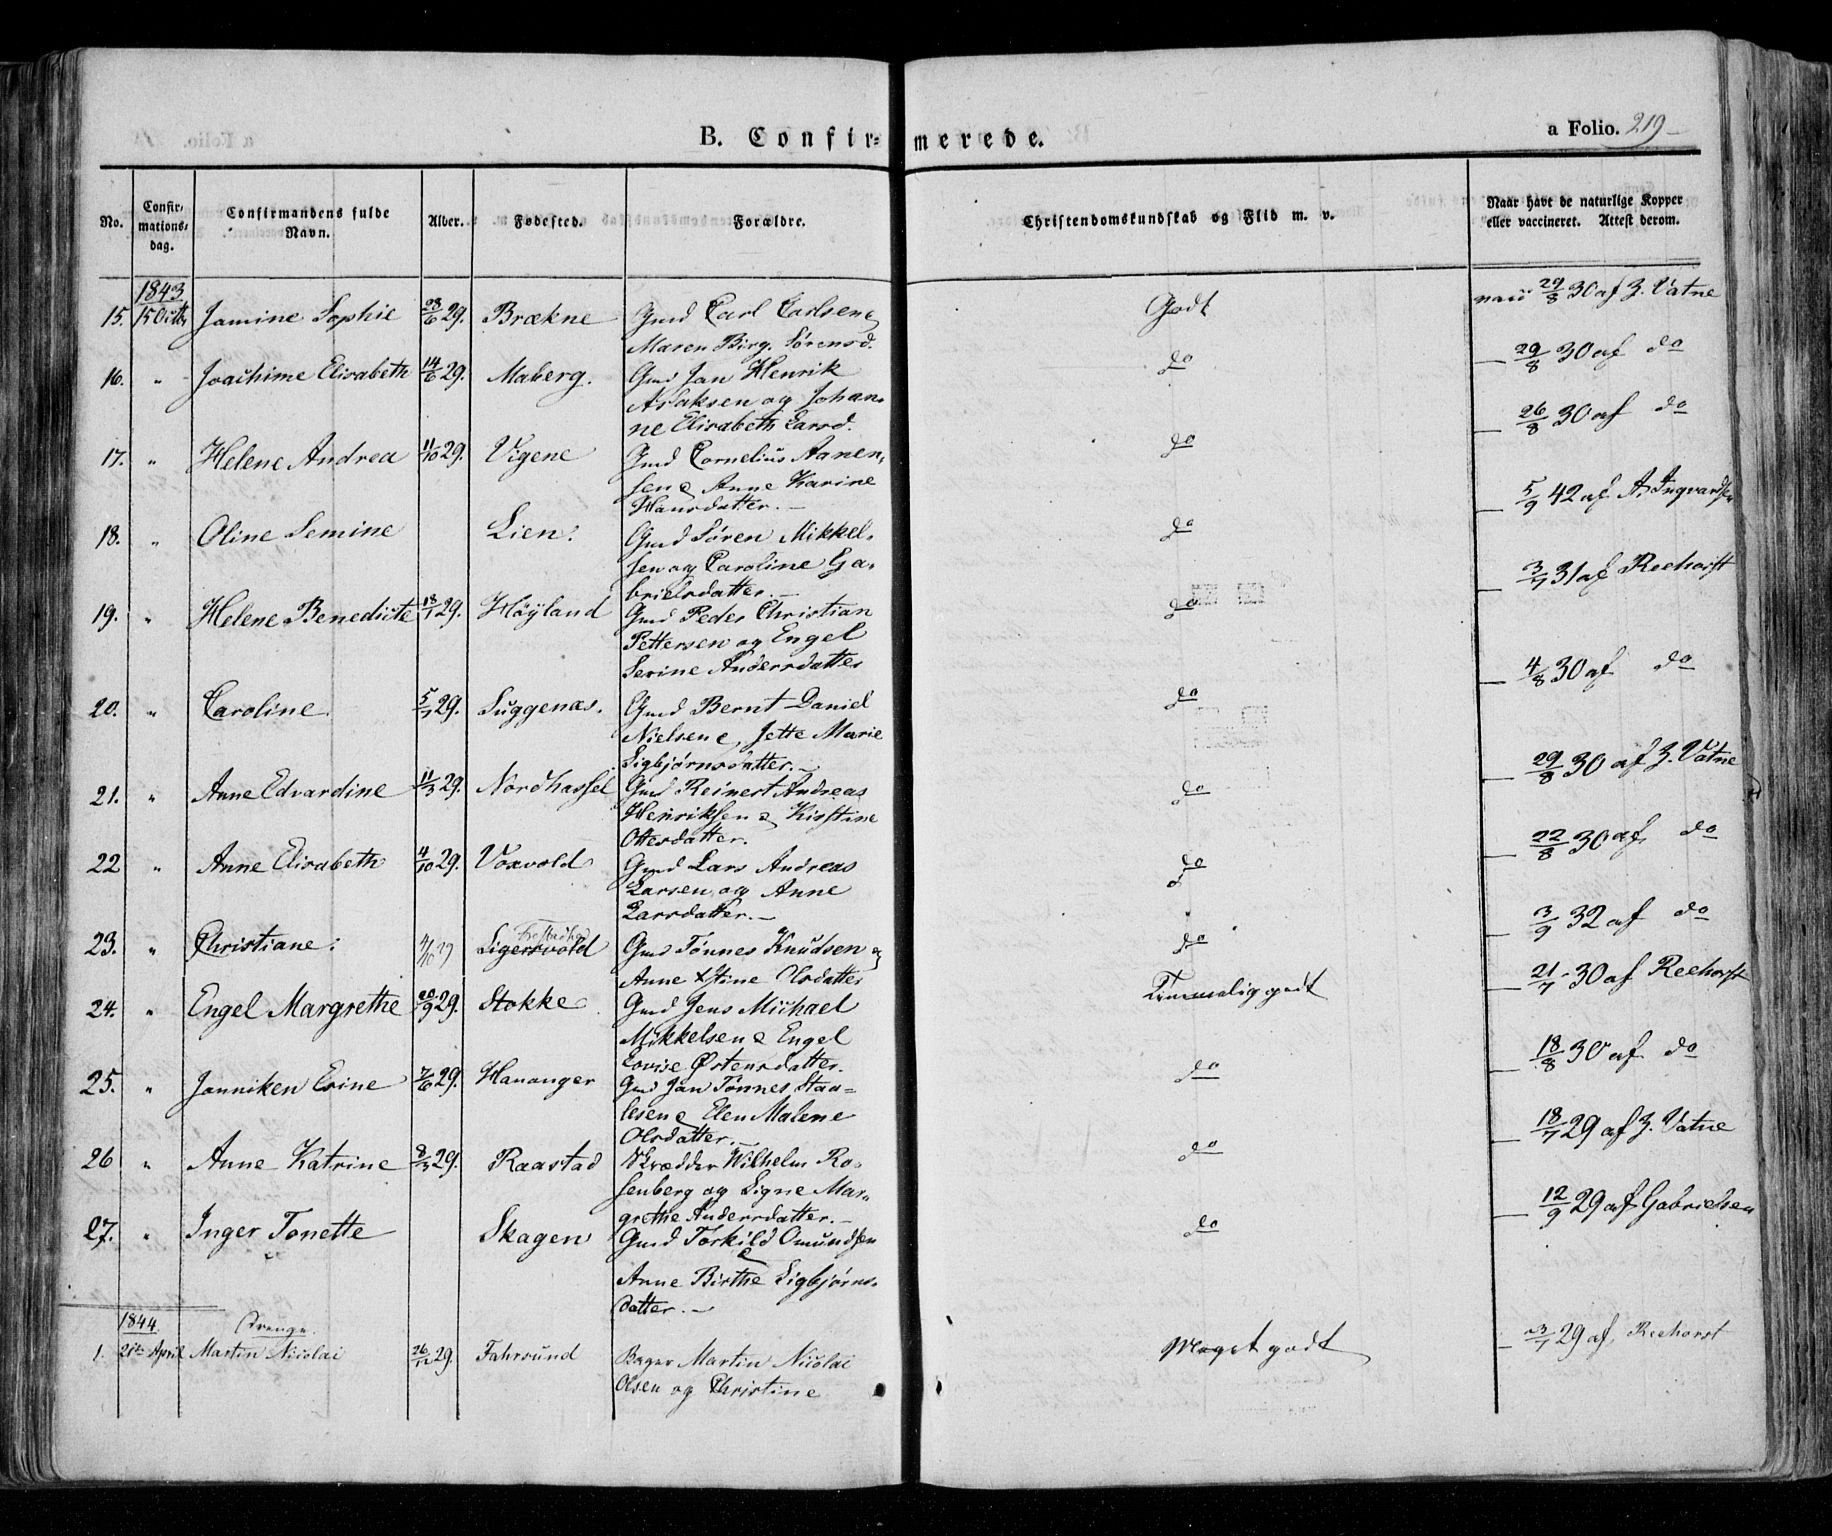 B. Confirmerede.
a Folio. 219
No. Confirmationsdag. Confirmandens fulde Navn. Alder. Fødested. Forældre. Christendomskundskab og Flid m. v. Naar havt de naturlige Kopper eller vaccineret. Attest derom.
1843.
15. 15 Octb Jamine Sophie 28/6 29. Brækne Gmd Carl Carlsen & Godt vacc 29/8 30 af Z. Vatne
Maren Birg. Sørensd.
16. " Joachime Elisabeth 14/6 29. Maberg. Gmd Jan Henrik do — 29/8 30 af do
Asaksen og Johan-
ne Elisabeth Larsd.
17. " Helene Andrea 11/10 29. Vigene Gmd Cornelius Aanen- do — 26/8 30 af do
sen & Anne Karine
Hansdatter. —
18. " Oline Semine Lien. Gmd Søren Mikkel- do — 5/9 42 af A. Ingvardsen
sen og Caroline Ga-
brielsdatter. —
19. " Helene Benedicte 18/1 29. Høyland Gmd Peder Christian do — 3/7 31 af Reehorst
Pettersen og Engel
Serine Andersdatter
20. " Caroline 5/7 29. Luggenæs. Gmd Bernt Daniel do — 4/8 30 af do
Nielsen &, Jette Marie
Sigbjørnsdatter. —
21. " Anne Edvardine 11/3 29. Nordhassel Gmd Reinert Andreas do — 29/8 30 af Z. Vatne
Henriksen & Kirstine
Ottersdatter.
22 " Anne Elisabeth 4/10 29. Voxvold Gmd Lars Andreas do — 22/8 30 af do
Larsen og Anne
Larsdatter. —
23. " Christiane. 4/10 29 Sigersvold Gmd Tønnes Knudsen og do — 3/9 32 af do
Anne Stine Olsdatter
24. " Engel Margrethe 20/9 29. Stokke Gmd Jens Michael Temmelig godt — 21/7 30 af Reehorst
Mikkelsen & Engel
Lovise Østensdatter.
25. " Janniken Erine 7/6 29. Hananger Gmd Jan Tønnes Staa- do — 18/8 30 af do
lesen & Elen Malene
Olsdatter. —
26 " Anne Katrine 8/3 29. Raastad Skrædder Wilhelm Ro- do — 18/7 29 af Z. Vatne
senberg og Signe Mar-
grethe Andersdatter. —
27. " Inger Tonette Skagen Gmd Torkild Omundsen do — 12/9 29 af Gabrielsen
&
Anne Birthe Sigbjørns-
datter. —
1844. Drenge.
1. 21de April Martin Nicolai 26/12 29. Fahrsund Bager Martin Nicolai Meget godt — 23/7 29 af Reehorst
Olsen og Christine